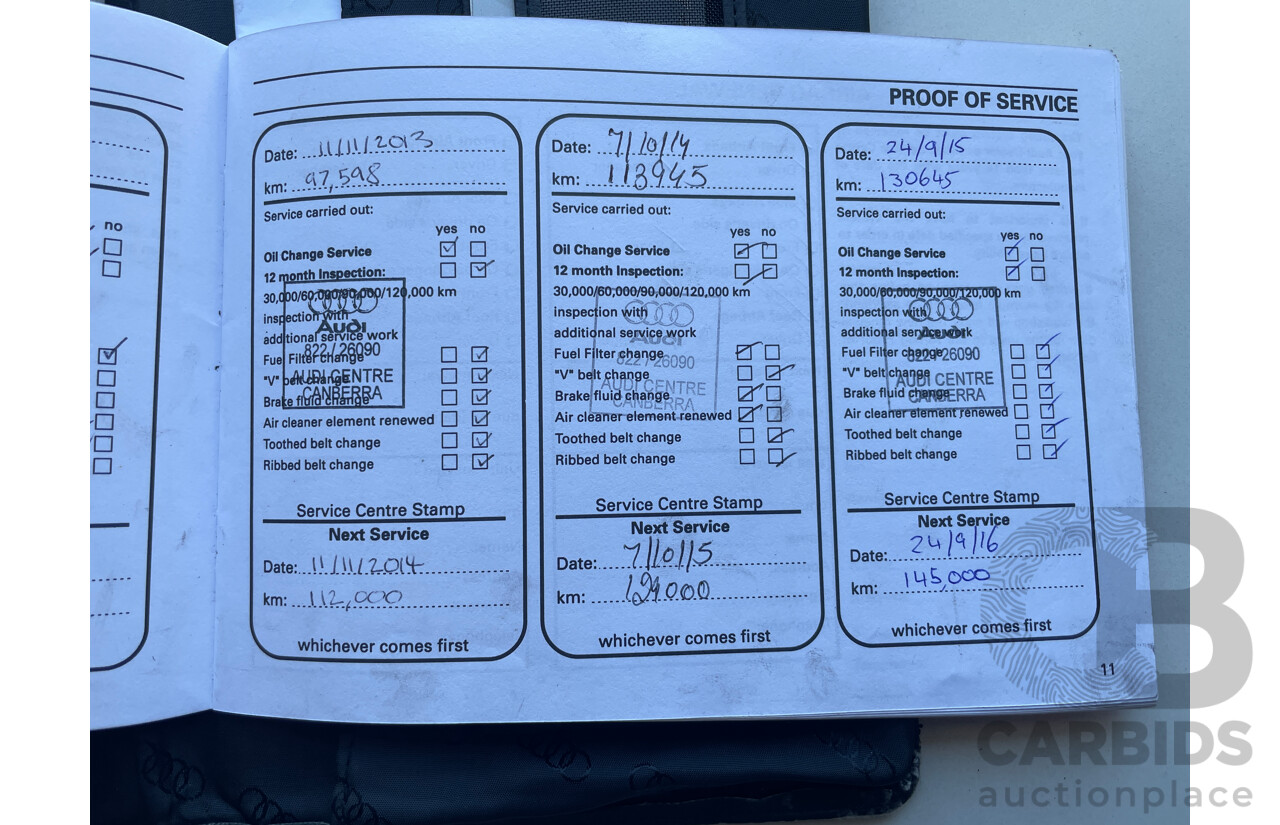 PROOF OF SERVICE
no
Date: 11/11/2013
km: 97,598
Service carried out:
yes no
Oil Change Service
12 month Inspection:
30,000/60,000/90,000/120,000 km
inspection with
additional service work
Fuel Filter change
"V" belt change
Brake fluid change
Air cleaner element renewed
Toothed belt change
Ribbed belt change
Audi
822 / 26090
AUDI CENTRE
CANBERRA
Service Centre Stamp
Next Service
Date: 11/11/2014
km: 112,000
whichever comes first
Date: 7/10/14
km: 113945
Service carried out:
yes no
Oil Change Service
12 month Inspection:
30,000/60,000/90,000/120,000 km
inspection with
additional service work
Fuel Filter change
"V" belt change
Brake fluid change
Air cleaner element renewed
Toothed belt change
Ribbed belt change
Audi
822 / 26090
AUDI CENTRE
CANBERRA
Service Centre Stamp
Next Service
Date: 7/10/15
km: 129000
whichever comes first
Date: 24/9/15
km: 130645
Service carried out:
yes no
Oil Change Service
12 month Inspection:
30,000/60,000/90,000/120,000 km
inspection with
additional service work
Fuel Filter change
"V" belt change
Brake fluid change
Air cleaner element renewed
Toothed belt change
Ribbed belt change
Audi
822 / 26090
AUDI CENTRE
CANBERRA
Service Centre Stamp
Next Service
Date: 24/9/16
km: 145,000
whichever comes first
11
CB
CARBIDS
auctionplace